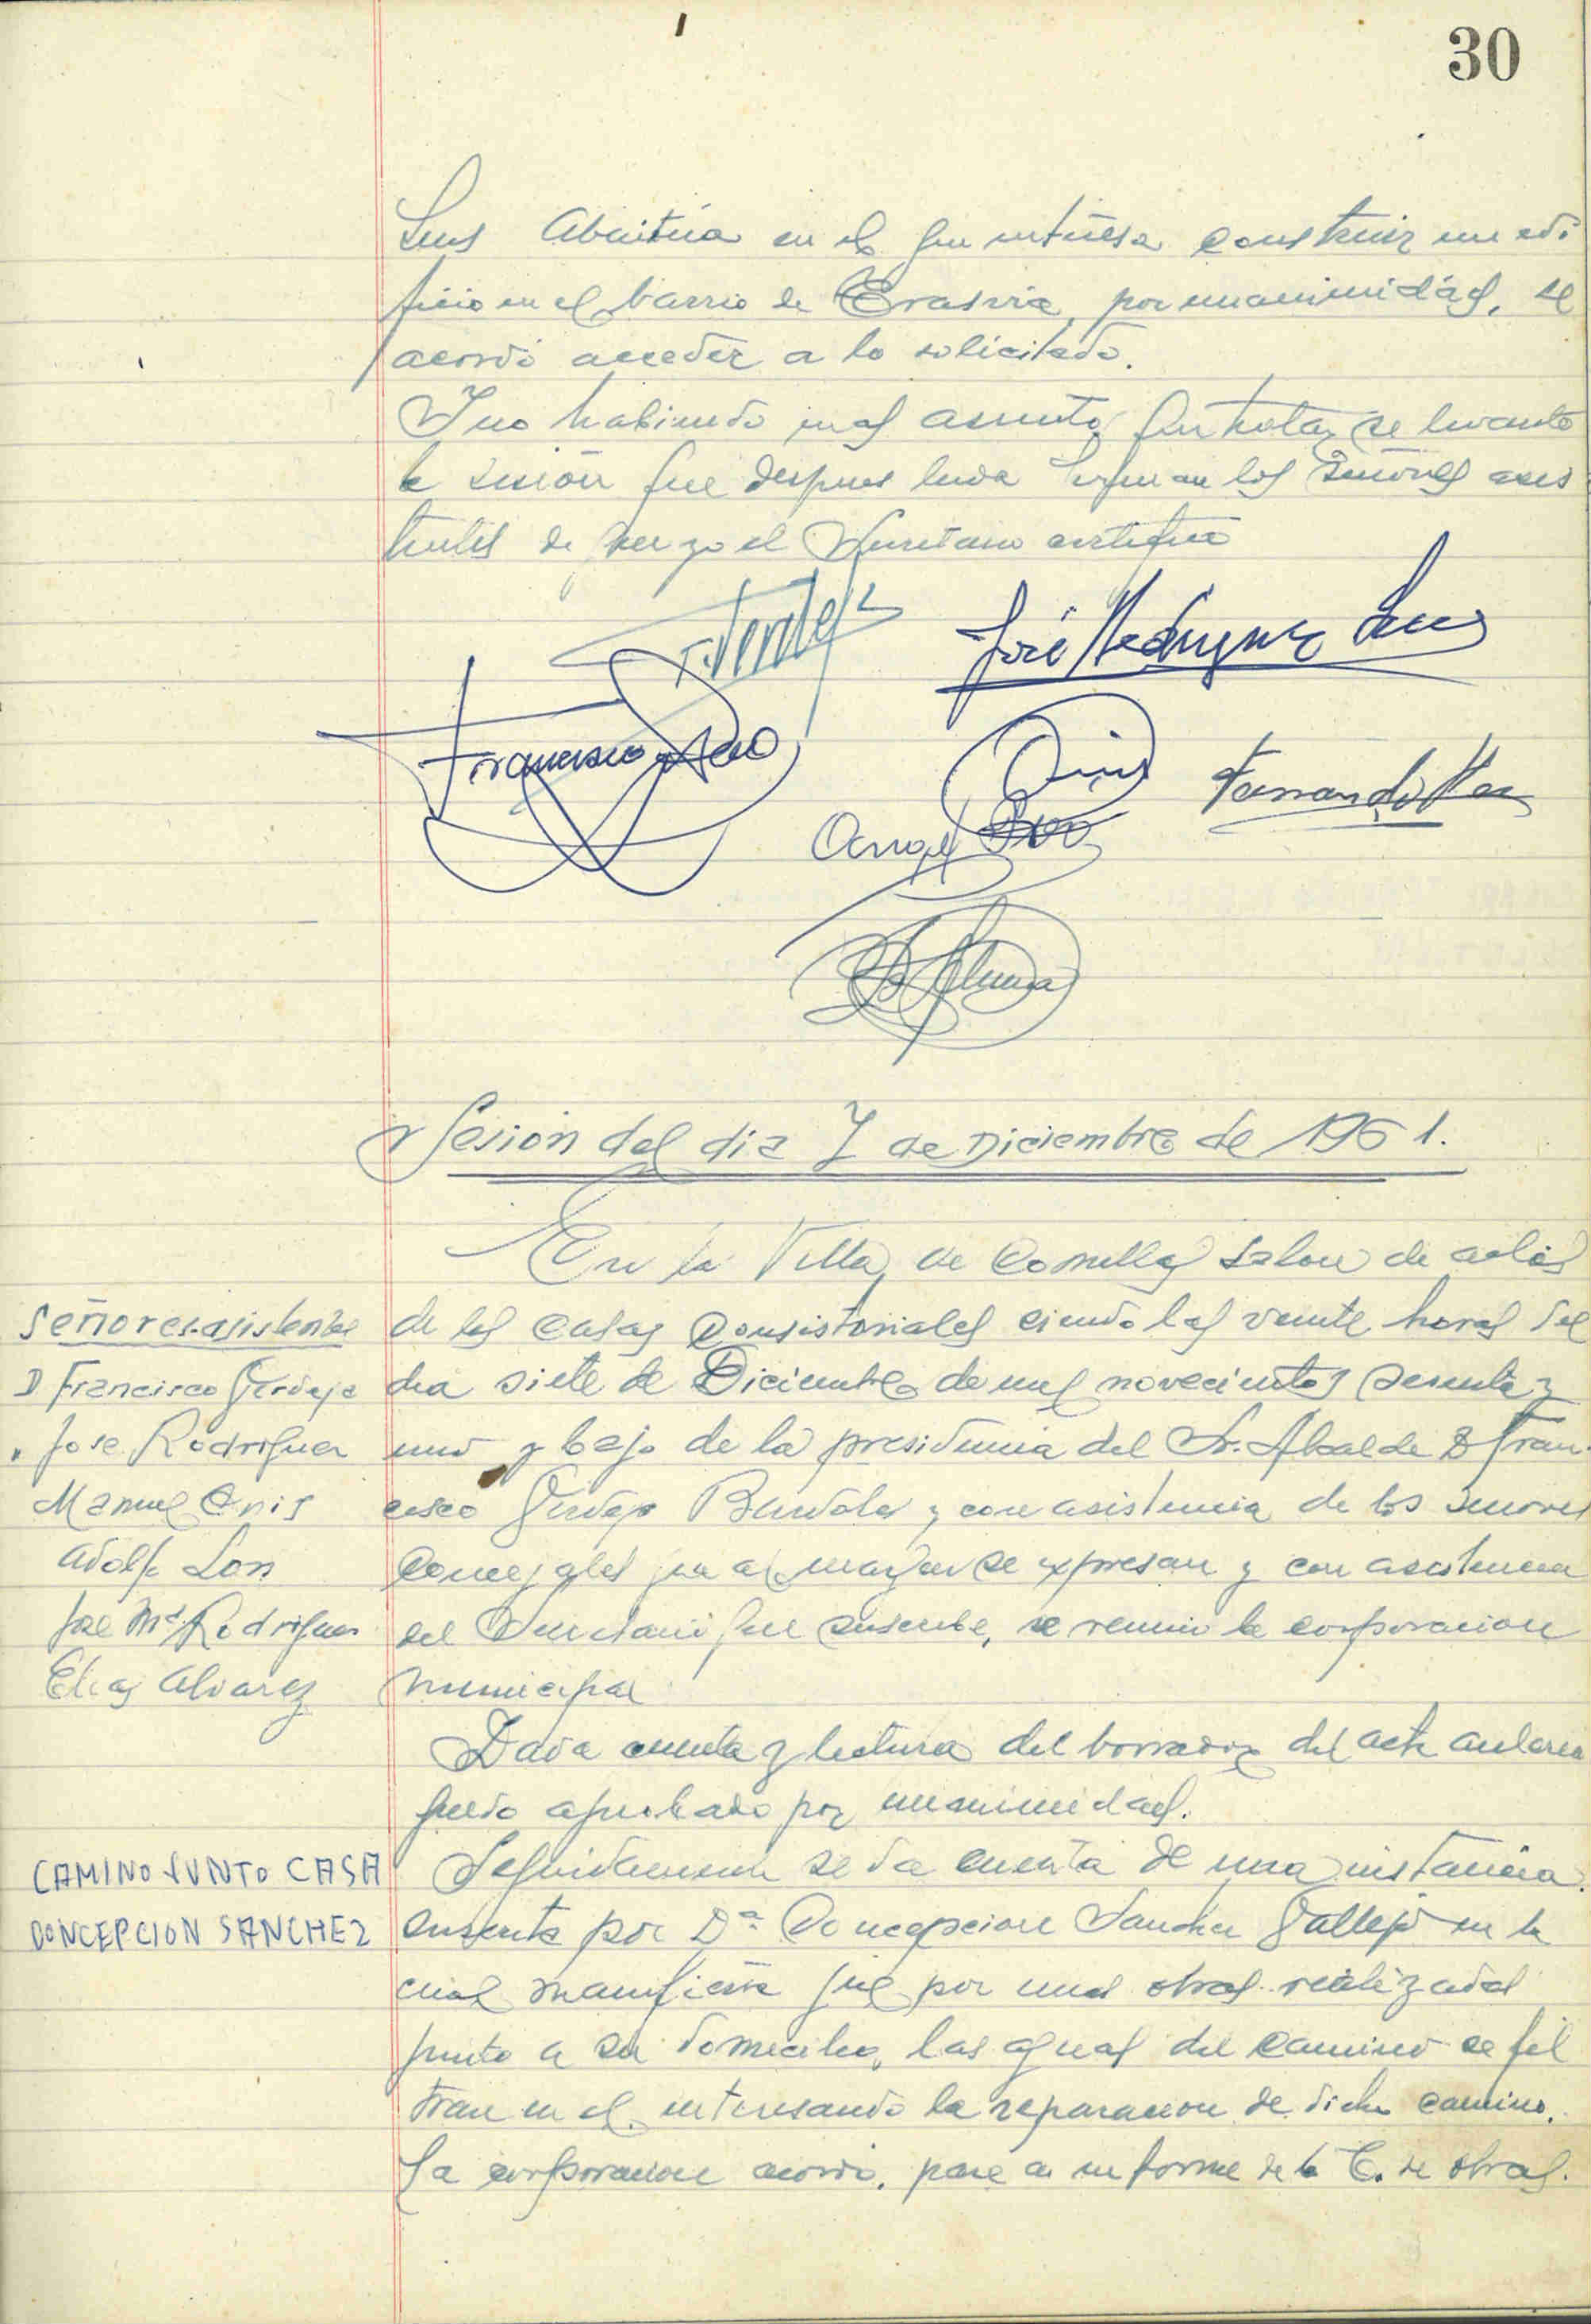 30
Luis Abaitúa en el que interesa construir un edi
ficio en el barrio de Trasvia, por unanimidad, se
acordó acceder a lo solicitado.
Y no habiendo mas asuntos que tratar se levanto
la sesión que despues leida firman los señores asis
tentes de que yo el Secretario certifico
José Rodriguez
Francisco
Fernando
Angel
Sesion del dia 7 de Diciembre de 1961.
En la Villa de Comillas salon de actos
Señores asistentes
de las Casas Consistoriales siendo las veinte horas del
D Francisco Verdejo
dia siete de Diciembre de mil novecientos sesenta y
" Jose Rodriguez
uno y bajo de la presidencia del Sr. Alcalde D Fran
Manuel
cisco Verdejo y con asistencia de los señores
Adolfo
Concejales que al margen se expresan y con asistencia
Jose Mª Rodriguez
del Secretario que suscribe, se reunio la corporacion
Elias Alvarez
municipal
Dada cuenta y lectura del borrador del acta anterior
quedo aprobado por unanimidad.
CAMINO JUNTO CASA
Seguidamente se da cuenta de una instancia
CONCEPCION SANCHEZ
suscrita por Dª Concepcion Sanchez Gallejo en la
cual manifiesta que por unas obras realizadas
junto a su domicilio, las aguas del camino se fil
tran en el interesando la reparacion de dicho camino.
La corporacion acordó, pase a informe de la C. de obras.